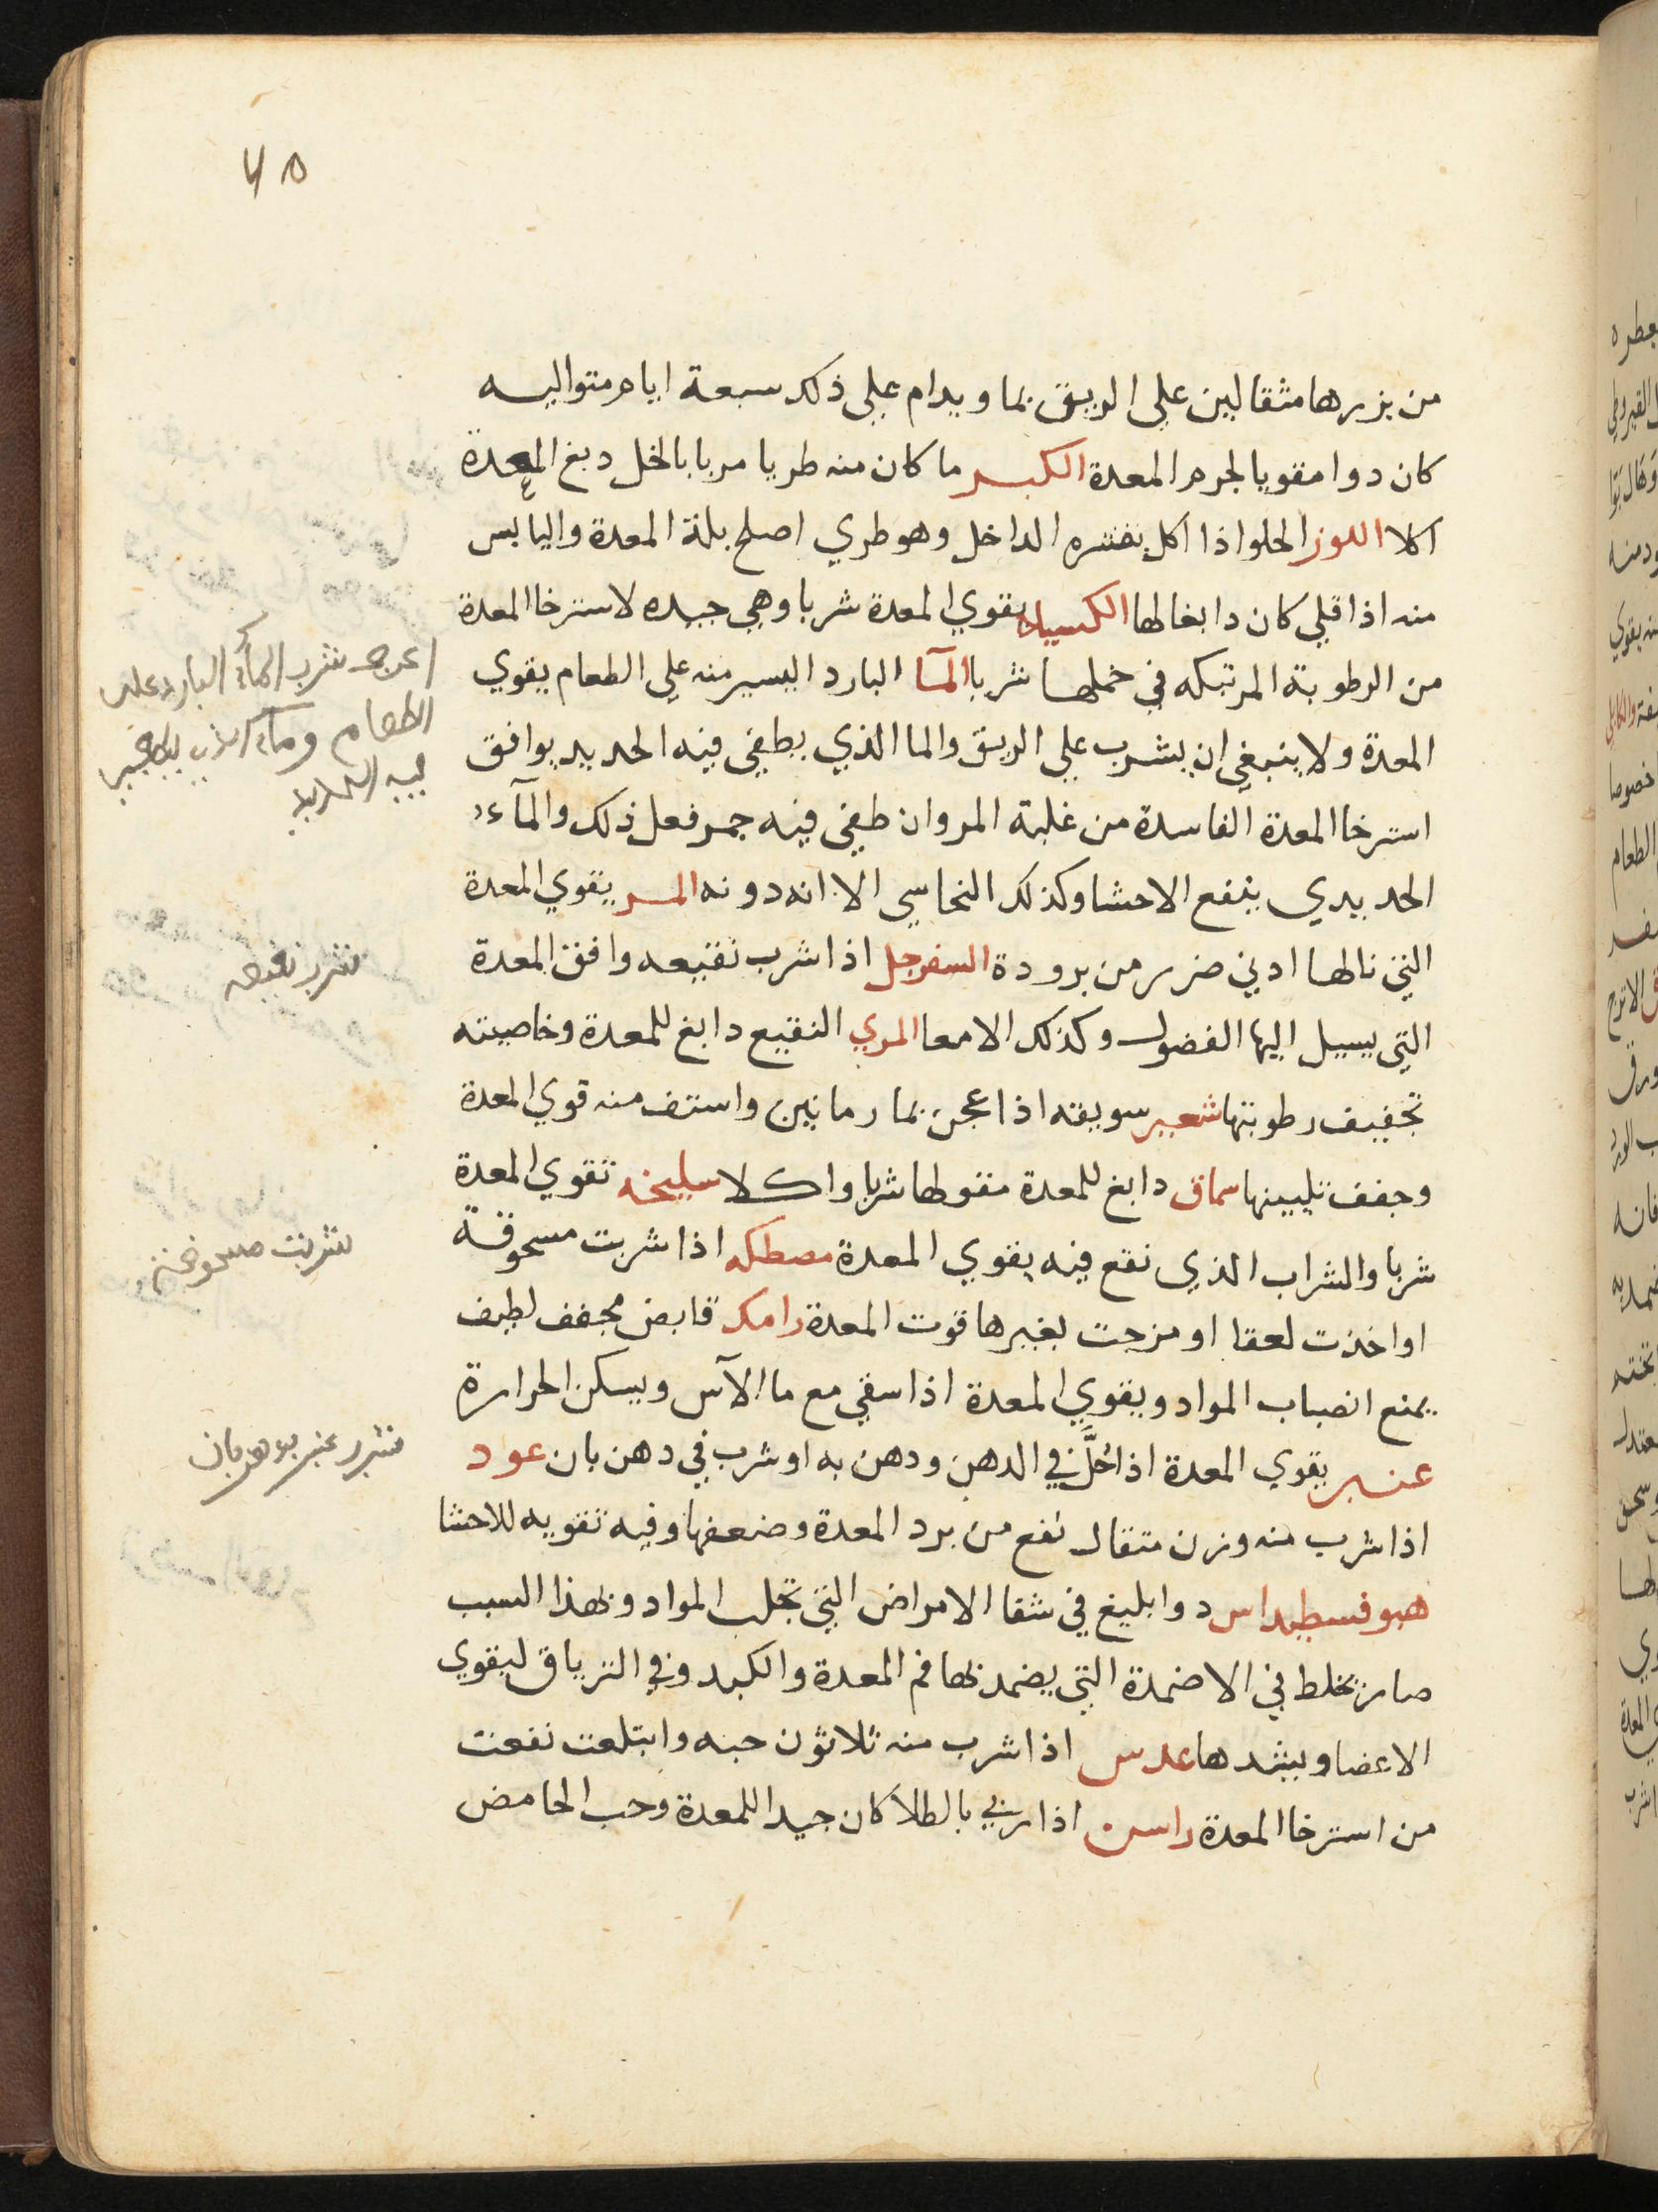 من بزرها مثقالين على الريق بما ويدام علي ذلك سبعة ايام متواليه
كان دوا مقويا لجرم المعدة الكبر ما كان منه طريا مربا بالخل دبغ المعدة
اكلا اللوز الحلو اذا اكل بقشره الداخل وهو طري اصلح بلة المعدة واليابس
منه اذا قلي كان دابغا لها الكسيلا يقوي المعدة شربا وهي جيده لاسترخا المعدة
من الرطوبة المرتبكه في خملها شربا المآ البارد اليسير منه علي الطعام يقوي
المعدة ولا ينبغي ان يشرب علي الريق والما الذي يطفي فيه الحديد يوافق
استرخا المعدة الفاسدة من غلبة المر وان طفي فيه جمر فعل ذلك والمآء
الحديدي ينفع الاحشا وكذلك النحاسي الا انه دونه المر يقوي المعدة
التي نالها ادني ضرر من برودة السفرجل اذا شرب نقيعه وافق المعدة
التي يسيل اليها الفضول وكذلك الامعا المري النقيع دابغ للمعدة وخاصيته
تجفيف رطوبتها شعير سويقه اذا عجن بما رمانين واستف منه قوي المعدة
وجفف تليينها سماق دابغ للمعدة مقو لها شربا واكلا سليخه تقوي المعدة
شربا والشراب الذي نقع فيه يقوي المعدة مصطكه اذا شربت مسحوقة
او اخذت لعقا او مزجت بغيرها قوت المعدة رامك قابض مجفف لطيف
يمنع انصباب المواد ويقوي المعدة اذا سقي مع ما الآس ويسكن الحرارة
عنبر يقوي المعدة اذا حُلَّ في الدهن ودهن به او شرب في دهن بان عود
اذا شرب منه وزن مثقال نفع من برد المعدة وضعفها وفيه تقويه للاحشا
هيوفسطيداس دوا بليغ في شفا الامراض التي تجلب المواد وبهذا السبب
صار يخلط في الاضمدة التي يضمد بها فم المعدة والكبد وفي الترياق ليقوي
الاعضا ويشدها عدس اذا شرب منه ثلاثون حبه وابتلعت نفعت
من استرخا المعدة راسن اذا ربي بالطلا كان جيدا للمعدة وحب الحامض
شرب المآء البارد على
الطعام ومآء
فيه الحديد
شرب نقيعه
شربت مسحوقة
شرب عنبر بدهن بان